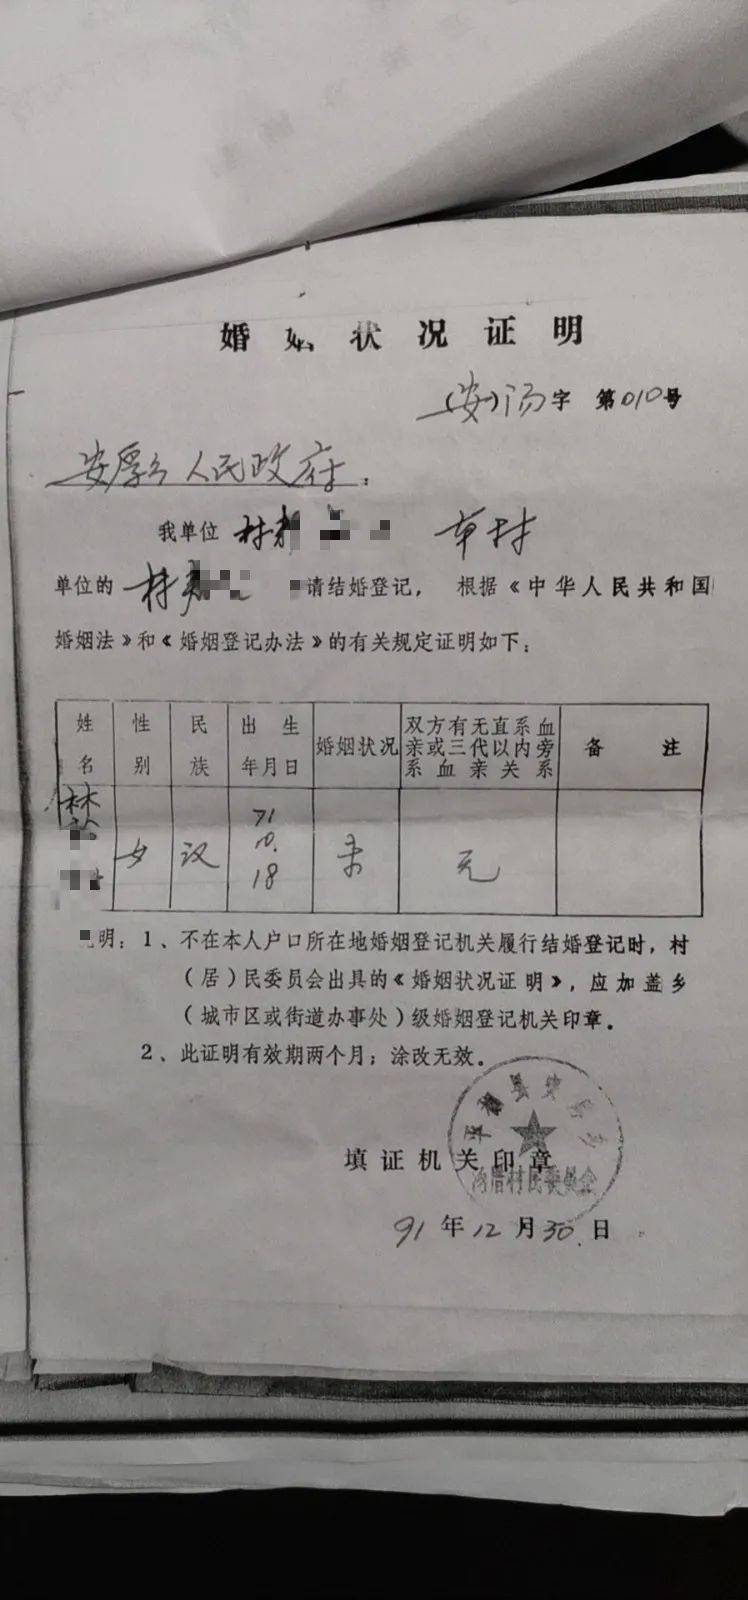 婚姻状况证明
(安)汤字 第010号
安厚乡人民政府：
我单位 林 草村
单位的 林 请结婚登记，根据《中华人民共和国
婚姻法》和《婚姻登记办法》的有关规定证明如下：
姓名 性别 民族 出生年月日 婚姻状况 双方有无直系血亲或三代以内旁系血亲关系 备注
林 女 汉 71 10. 18 未 无
明：1、不在本人户口所在地婚姻登记机关履行结婚登记时，村
（居）民委员会出具的《婚姻状况证明》，应加盖乡
（城市区或街道办事处）级婚姻登记机关印章。
2、此证明有效期两个月；涂改无效。
平和县安厚乡
村民委员会
填证机关印章
91年12月30日